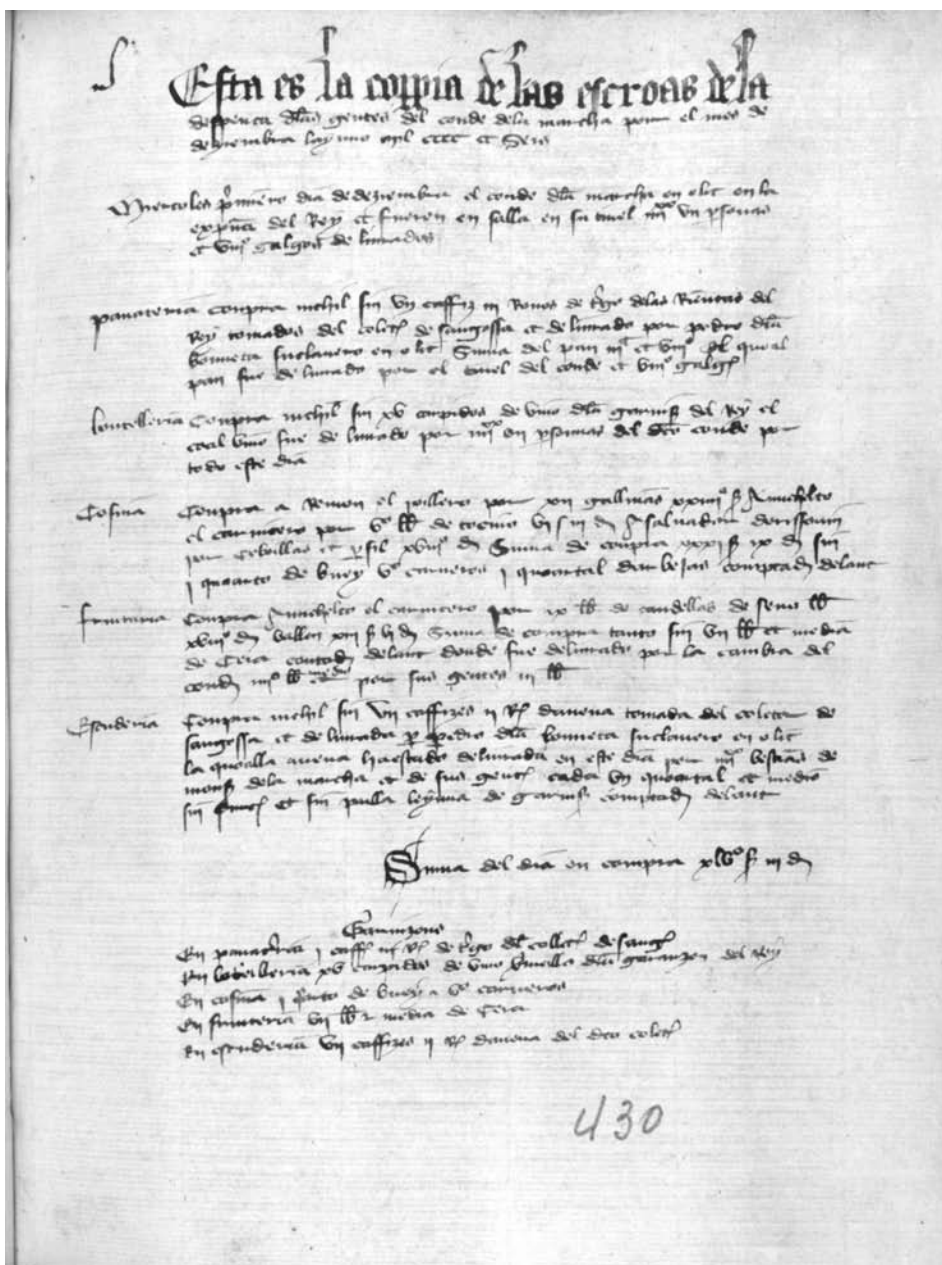 Esta es la coppia de las escroas de la
despensa dlas gentes del conde dela marcha por el mes de
deziembre layno mil cccc et Seis
Miercoles primero dia de deziembre el conde dla marcha en olit en la
expensa del Rey et fueron en salla en su tinel personas
et galgos de liurados
panateria Compra nichil sin vn caffiz iii Rouos de trigo delas Rientas del
Rey tomados del colector de sanguossa et deliurado por pedro dla
bonneta suclauero en olit Suma del pan El quoal
pan fue deliurado por el tinel del conde et galgos
bouteilleria Compra nichil sin xv carapidos de vino dla garnison del Rey el
coal vino fue deliurado por personas del dicho conde por
todo este dia
Cosina Compra a Remon el poillero por xii gallinas xxiiiiº s
el carnicero por vº lb de tocino vi s iii d A saluador
por cebollas et perexil xviiiº d Suma de compra xxxi s ix d sin
i quoarto de buey vº carneros i quoartal darbejas comptados delant
fruiteria Compra el carnicero por ix lb de candellas de seuo lb
xviiiº d vallen xiii s vi d Suma de compra tanto sin vii lb et media
de Cera contados delant donde fue deliurado por la cambra del
conde lb et media por sus gentes iii lb
Escuderia Compra nichil sin vii caffizes ii R dauena tomada del colector de
sanguossa et deliurada por pedro dla bonneta suclauero en olit
la quoalla auena ha estado deliurada en este dia por bestias de
mons dela marcha et de sus gentes cada vn quoartal et medio
sin et sin palla leynna de garnison comptados delant
Suma del dia en compra xlvº s iii d
Garnizones
En panateria i caffiz iii R de trigo del collector de sang
En botelleria xv carapidos de vino vermello dla garnizon del Rey
En cosina i quarto de buey vº carneros
En fruiteria vii lb et media de Cera
En escuderia vii caffizes ii R dauena del dicho colector
430